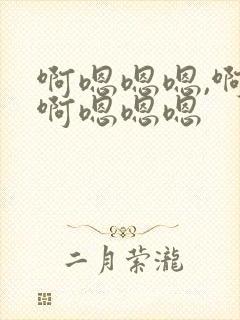 啊嗯嗯嗯,啊
啊嗯嗯嗯
二月萦瀧